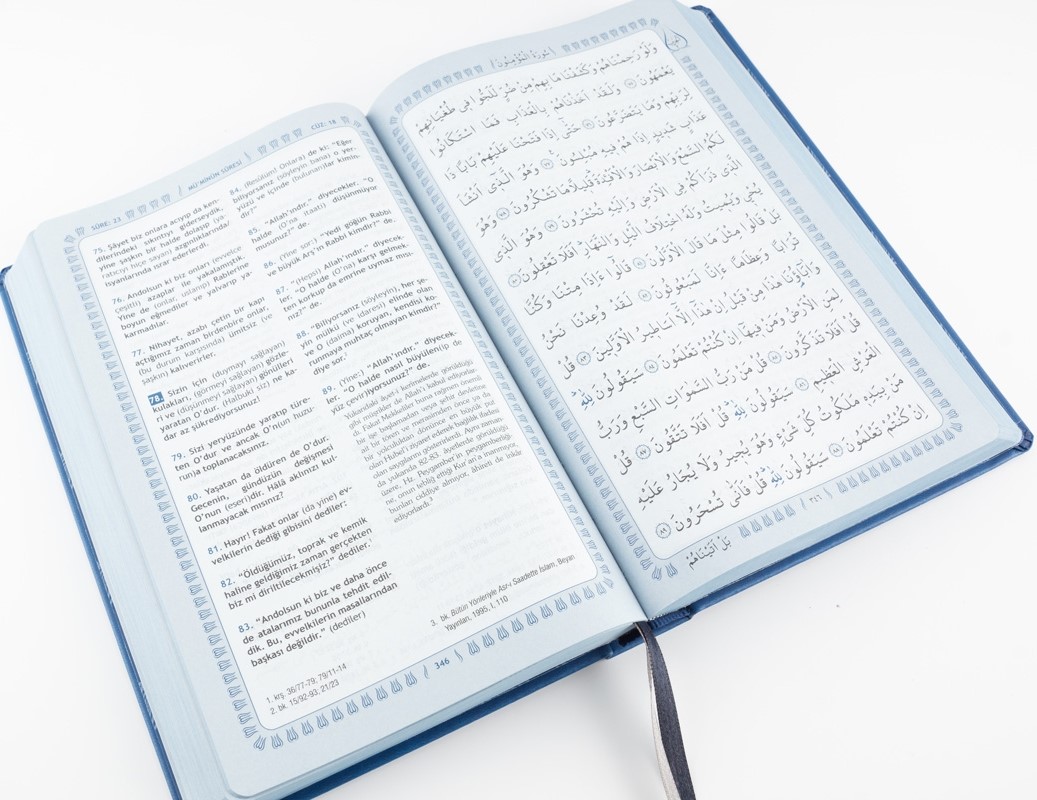 SÛRE: 23
MÜ'MİNÛN SÛRESİ
CÜZ: 18
75. Şâyet biz onlara acıyıp da ken-
dilerindeki sıkıntıyı giderseydik,
yine şaşkın bir halde dolaşıp (ya-
ratıcıyı hiçe sayan) azgınlıklarında/
isyanlarında ısrar ederlerdi.
76. Andolsun ki biz onları (evvelce
çeşitli) azaplar ile yakalamıştık.
Yine de (onlar, uslanıp) Rablerine
boyun eğmediler ve yalvarıp ya-
karmadılar.
77. Nihayet, azabı çetin bir kapı
açtığımız zaman birdenbire onlar,
(bu durum karşısında) ümitsiz (ve
şaşkın) kalıverirler.
78. Sizin için (duymayı sağlayan)
kulakları, (görmeyi sağlayan) gözle-
ri ve (düşünmeyi sağlayan) gönülleri
yaratan O'dur. (Halbuki) siz ne ka-
dar az şükrediyorsunuz!
79. Sizi yeryüzünde yaratıp türe-
ten O'dur ve ancak O'nun huzu-
runda toplanacaksınız.
80. Yaşatan da öldüren de O'dur.
Gecenin, gündüzün değişmesi
O'nun (eseri)dir. Hâlâ aklınızı kul-
lanmayacak mısınız?
81. Hayır! Fakat onlar (da yine) ev-
velkilerin dediği gibisini dediler:
82. "Öldüğümüz, toprak ve kemik
haline geldiğimiz zaman gerçekten
biz mi diriltilecekmişiz?" dediler.¹
83. "Andolsun ki biz ve daha önce
de atalarımız bununla tehdit edil-
dik. Bu, evvelkilerin masallarından
başkası değildir." (dediler)
1. krş. 36/77-79; 79/11-14
2. bk. 15/92-93; 21/23
84. (Resûlüm! Onlara) de ki: "Eğer
biliyorsanız (söyleyin bana) o yer-
yüzü ve içinde (bulunan)lar kimin-
dir?"
85. "Allah'ındır." diyecekler. "O
halde (O'na itaati) düşünmüyor
musunuz?" de.
86. (Yine sor:) "Yedi göğün Rabbi
ve büyük Arş'ın Rabbi kimdir?" de.
87. "(Hepsi) Allah'ındır." diyecek-
ler. "O halde (O'na) karşı gelmek-
ten korkup da emrine uymaz mısı-
nız?" de.
88. "Biliyorsanız (söyleyin), her şe-
yin mülkü (ve idaresi) elinde olan
ve O (daima) koruyan, kendisi ko-
runmaya muhtaç olmayan kimdir?"
diye sor.²
89. (Yine:) "Allah'ındır." diyecek-
ler. "O halde nasıl büyülenip de
yüz çeviriyorsunuz?" de.
3. bk. Bütün Yönleriyle Asr-ı Saadette İslam, Beyan
Yayınları, 1995, I, 110
346
سُورَةُ الْمُؤْمِنُونَ
وَلَوْ رَحِمْنَاهُمْ وَكَشَفْنَا مَا بِهِمْ مِنْ ضُرٍّ لَلَجُّوا فِي طُغْيَانِهِمْ
يَعْمَهُونَ ﴿٧٥﴾ وَلَقَدْ اَخَذْنَاهُمْ بِالْعَذَابِ فَمَا اسْتَكَانُوا
لِرَبِّهِمْ وَمَا يَتَضَرَّعُونَ ﴿٧٦﴾ حَتّٰى اِذَا فَتَحْنَا عَلَيْهِمْ بَابًا ذَا
عَذَابٍ شَدِيدٍ اِذَا هُمْ فِيهِ مُبْلِسُونَ ﴿٧٧﴾ وَهُوَ الَّذِى اَنْشَاَ
لَكُمُ السَّمْعَ وَالْاَبْصَارَ وَالْاَفْـِٔدَةَ قَلِيلًا مَا تَشْكُرُونَ ﴿٧٨﴾ وَهُوَ
الَّذِى ذَرَاَكُمْ فِى الْاَرْضِ وَاِلَيْهِ تُحْشَرُونَ ﴿٧٩﴾ وَهُوَ الَّذِى
يُحْيِ وَيُمِيتُ وَلَهُ اخْتِلَافُ الَّيْلِ وَالنَّهَارِ اَفَلَا تَعْقِلُونَ ﴿٨٠﴾
بَلْ قَالُوا مِثْلَ مَا قَالَ الْاَوَّلُونَ ﴿٨١﴾ قَالُوا ءَاِذَا مِتْنَا وَكُنَّا
تُرَابًا وَعِظَامًا ءَاِنَّا لَمَبْعُوثُونَ ﴿٨٢﴾ لَقَدْ وُعِدْنَا نَحْنُ
وَاٰبَاؤُنَا هٰذَا مِنْ قَبْلُ اِنْ هٰذَا اِلَّا اَسَاطِيرُ الْاَوَّلِينَ ﴿٨٣﴾ قُلْ
لِمَنِ الْاَرْضُ وَمَنْ فِيهَا اِنْ كُنْتُمْ تَعْلَمُونَ ﴿٨٤﴾ سَيَقُولُونَ لِلّٰهِ
قُلْ اَفَلَا تَذَكَّرُونَ ﴿٨٥﴾ قُلْ مَنْ رَبُّ السَّمٰوَاتِ السَّبْعِ وَرَبُّ
الْعَرْشِ الْعَظِيمِ ﴿٨٦﴾ سَيَقُولُونَ لِلّٰهِ قُلْ اَفَلَا تَتَّقُونَ ﴿٨٧﴾ قُلْ
مَنْ بِيَدِهِ مَلَكُوتُ كُلِّ شَيْءٍ وَهُوَ يُجِيرُ وَلَا يُجَارُ عَلَيْهِ
اِنْ كُنْتُمْ تَعْلَمُونَ ﴿٨٨﴾ سَيَقُولُونَ لِلّٰهِ قُلْ فَاَنّٰى تُسْحَرُونَ ﴿٨٩﴾
٣٤٦
بَلْ اَتَيْنَاهُمْ